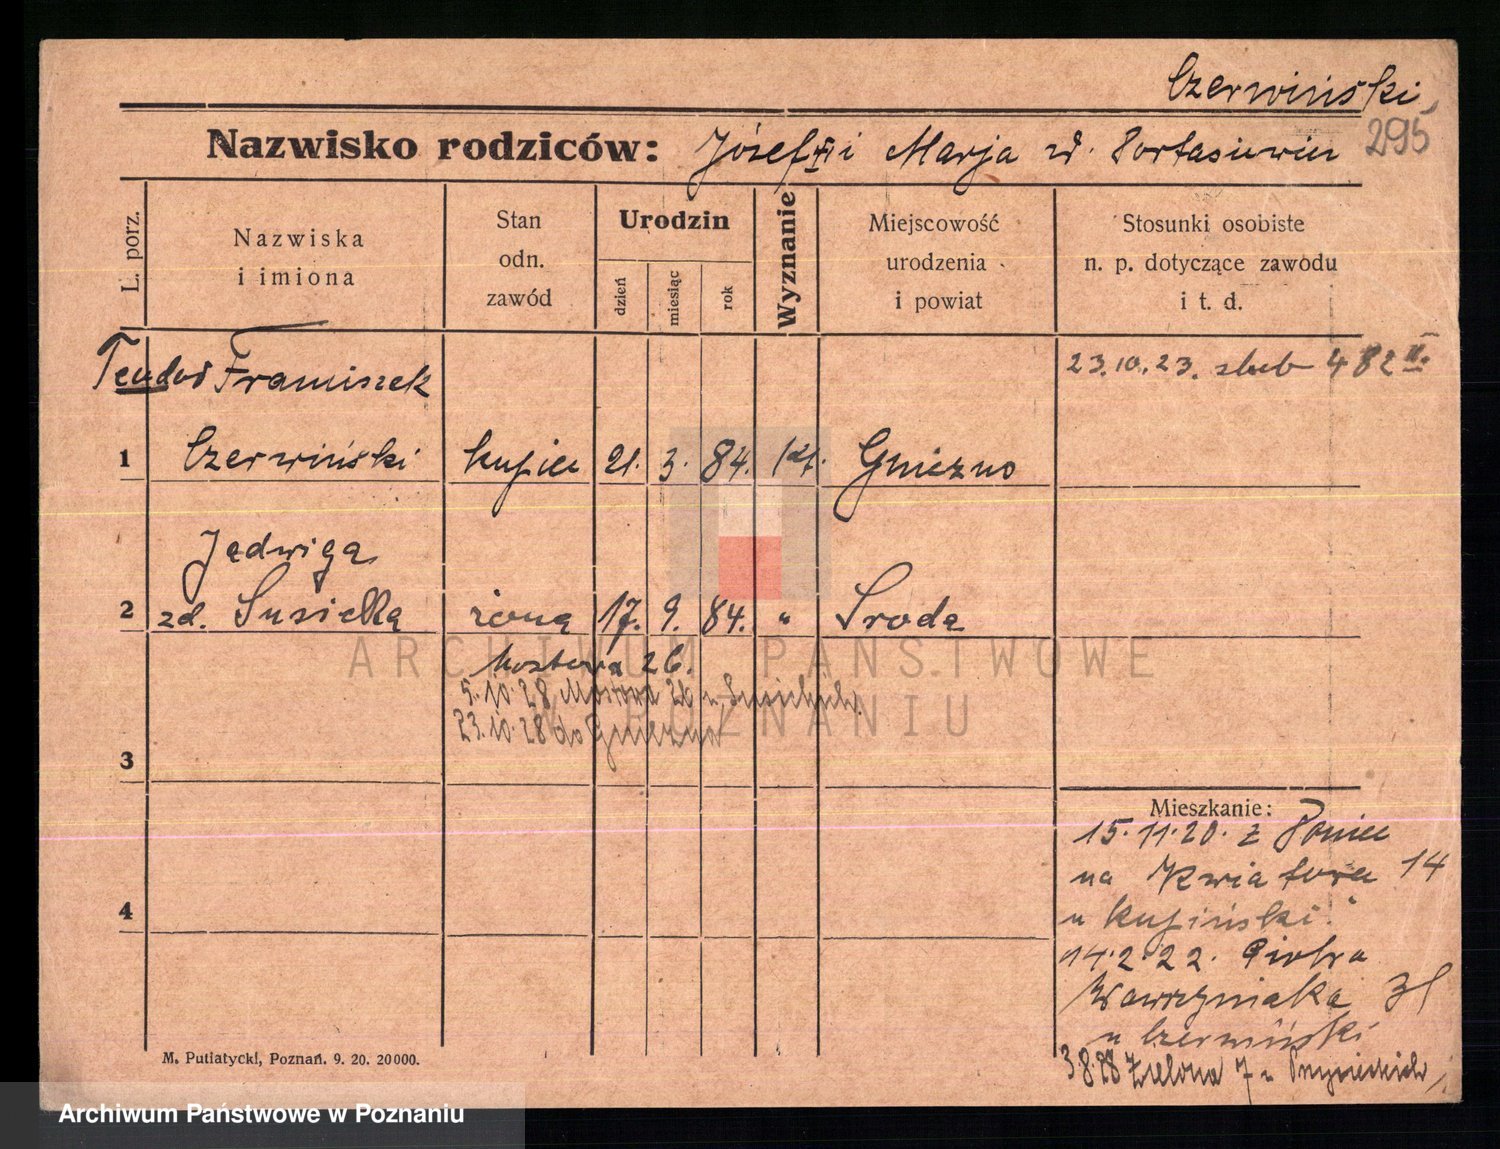 Czerwiński
Nazwisko rodziców: Józef i Marja zd. Portasiewicz 295
L. porz.
Nazwiska
i imiona
Stan
odn.
zawód
Urodzin
dzień
miesiąc
rok
Wyznanie
Miejscowość
urodzenia
i powiat
Stosunki osobiste
n. p. dotyczące zawodu
i t. d.
Teodor Franciszek
23.10.23. ślub 482 II.
1 Czerwiński kupiec 21. 3. 84. kat. Gniezno
Jadwiga
2 zd. Susicka żona 17. 9. 84. " Środa
Mostowa 26.
5.10.28 Mostowa 26 u
23.10.28 do Gniezna
3
Mieszkanie:
15.11.20. z Poniec
na Kwiatowa 14
u Kupiński.
4
14.2.22. Piotra
Wawrzyniaka 31
u Czerwiński
3.8.28 Zielona 7 u
M. Putiatycki, Poznań. 9. 20. 20000.
ARCHIWUM PAŃSTWOWE
W POZNANIU
Archiwum Państwowe w Poznaniu